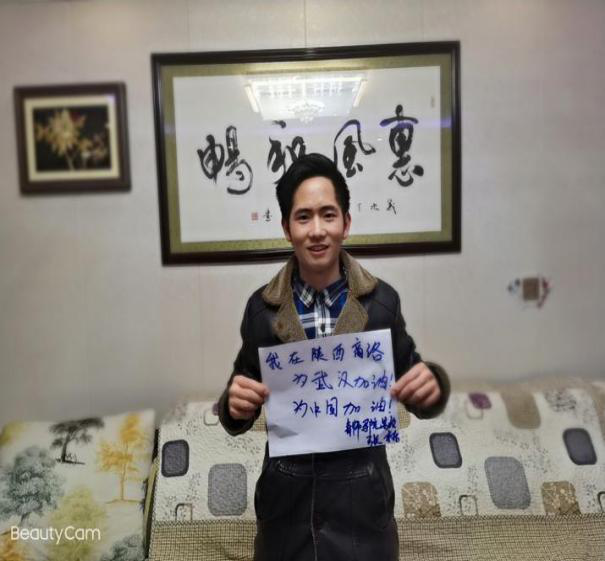 惠風和暢
我在陕西商洛
为武汉加油!
为中国加油!
BeautyCam